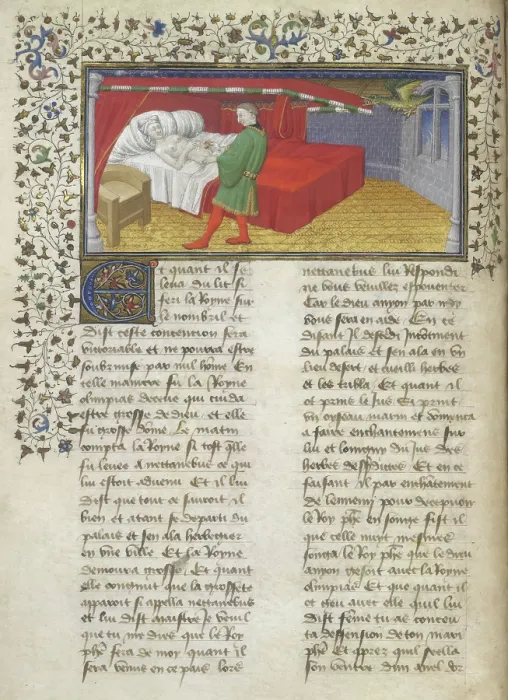 Et quant il se
leva du lit si
feri la Royne sur
le nombril et
dist ceste concention sera
victoriable et ne pourra estre
soubzmise par nul hōme En
telle maniere fu la Royne
olimpias deceue qui cuida
estre grosse de dieu et elle
fu grosse dome Le matin
compta la Royne si tost q̄lle
fu levee a nectanebus ce qui
lui estoit advenu Et il lui
dist que tout ce savoit il
bien et atant se departi du
palais et sen ala herbergier
en vne ville Et la Royne
demoura grosse Et quant
elle congnut que sa grossete
apparoit si appella nectanebus
et lui dist maistre Je veuil
que tu me dies que le Roy
phē fera de moy quant il
sera venus en ce pais lors
nectanebus lui Respondi
ne vous veuillez espouenter
Car le dieu amon par moy
vous sera en aide En ce
disant Il descendi
du palais et sen ala en vn
lieu desert et cueilli herbes
et les tribla Et quant il
ot prins le Jus Si print
vn oyseau marin et commenca
a faire enchantemens sur
lui et loingny du Jus des
herbes dessusdictes Et en ce
faisant il par enchātement
de lennemi pour decepuoir
le Roy phē en songe fist il
que celle nuyt mesmes
songa le Roy phē que le dieu
amon gesoit avec la Royne
olimpias Et que quant il
ot geu avec elle quil lui
dist feme tu as conceu
ta deffension de ton mari
phē Et aprez quil seella
son ventre dun anel dor